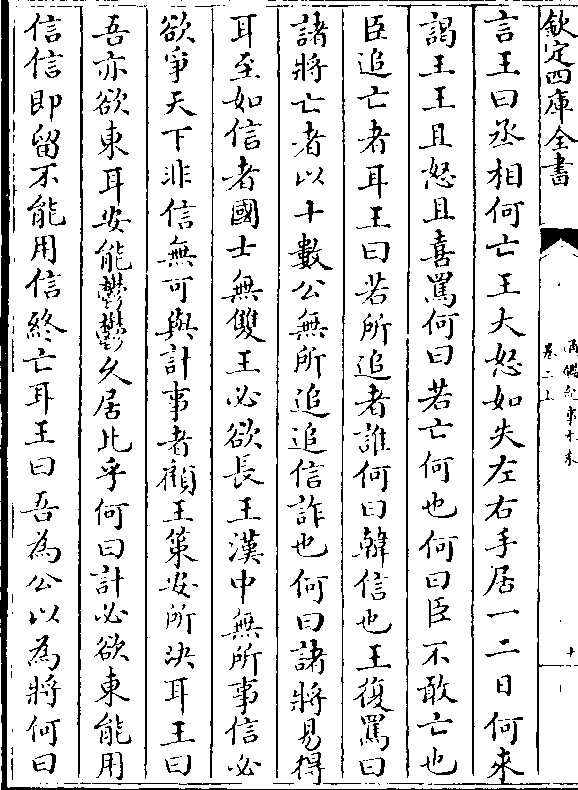 欽定四庫全書
通鑑紀事本末
卷二上
十
言王曰丞相何亡王大怒如失左右手居一二日何來
謁王王且怒且喜罵何曰若亡何也何曰臣不敢亡也
臣追亡者耳王曰若所追者誰何曰韓信也王復罵曰
諸將亡者以十數公無所追追信詐也何曰諸將易得
耳至如信者國士無雙王必欲長王漢中無所事信必
欲爭天下非信無可與計事者顧王策安所決耳王曰
吾亦欲東耳安能鬱鬱久居此乎何曰計必欲東能用
信信即留不能用信終亡耳王曰吾為公以為將何曰